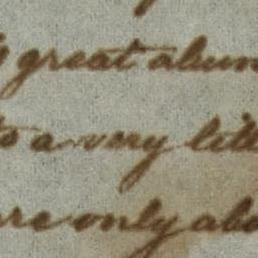 great abun
to a very litt
are only abo